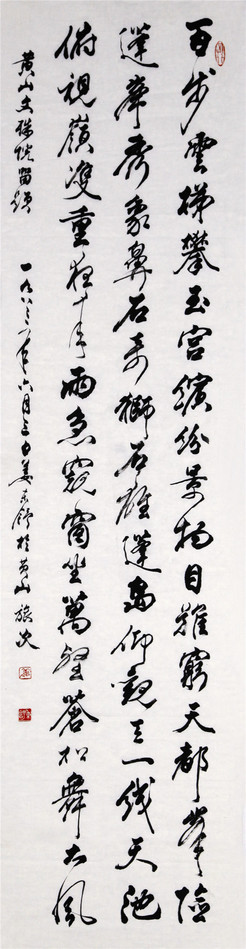 百步雲梯攀玉宮繽紛景物目難窮天都峰險
蓮峰秀象鼻石奇獅石雄蓬島仰觀天一线天池
俯視嶺雙重夜半雨急窺窗坐萬壑蒼松舞大風
黄山文殊院留題 一九八三年六月三日姜东舒於黄山旅次